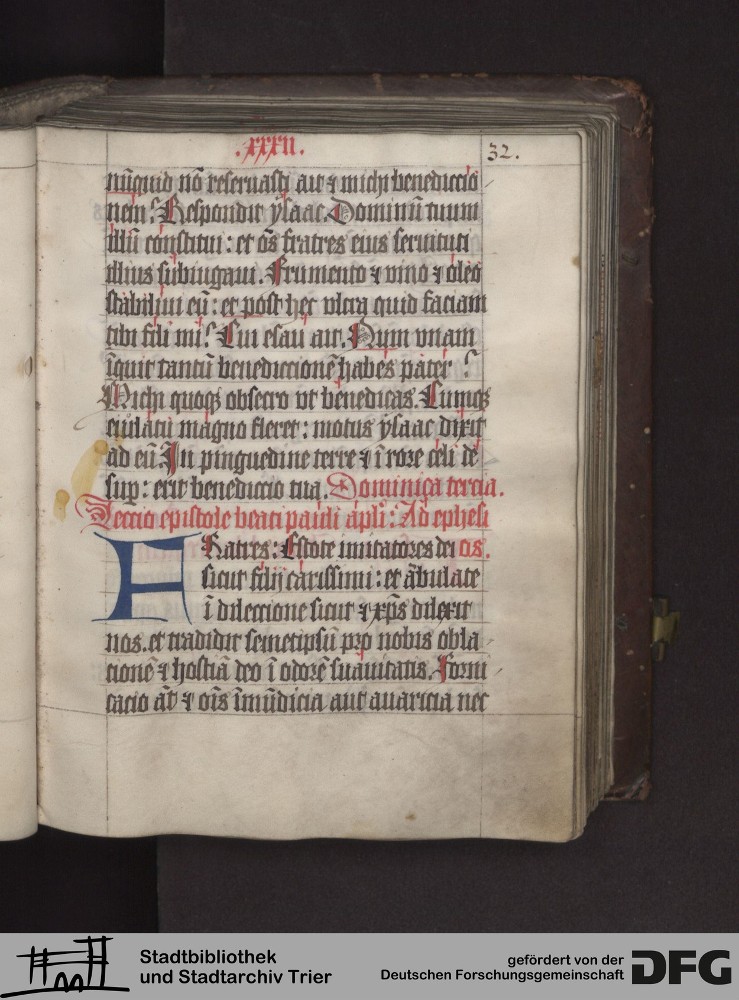 .xxxii.
32.
nūquid nō reseruasti ait ⁊ michi benedictio
nem? Respondit ysaac. Dominū tuum
illū constitui: et oēs fratres eius seruituti
illius subiugaui. Frumento ⁊ vino ⁊ oleo
stabiliui eū: et post hec vltra quid faciam
tibi fili mi? Cui esau ait. Num vnam
īquit tantū benedictionē habes pater?
Michi quoqꝫ obsecro vt benedicas. Cumqꝫ
eiulatu magno fleret: motus ysaac dixit
ad eū. In pinguedine terre ⁊ ī rore celi de
sup̄: erit benedictio tua. Dominica tercia.
Lectio epistole beati pauli apli: Ad ephesi
os.
Fratres: Estote imitatores dei
sicut filij carissimi: et ābulate
ī dilectione sicut ⁊ xp̄s dilexit
nos. et tradidit semetipsū pro nobis obla
tionē ⁊ hostiā deo ī odorē suauitatis. Forni
catio āt ⁊ oīs īmūdicia aut auaritia nec
Stadtbibliothek
und Stadtarchiv Trier
gefördert von der
Deutschen Forschungsgemeinschaft
DFG